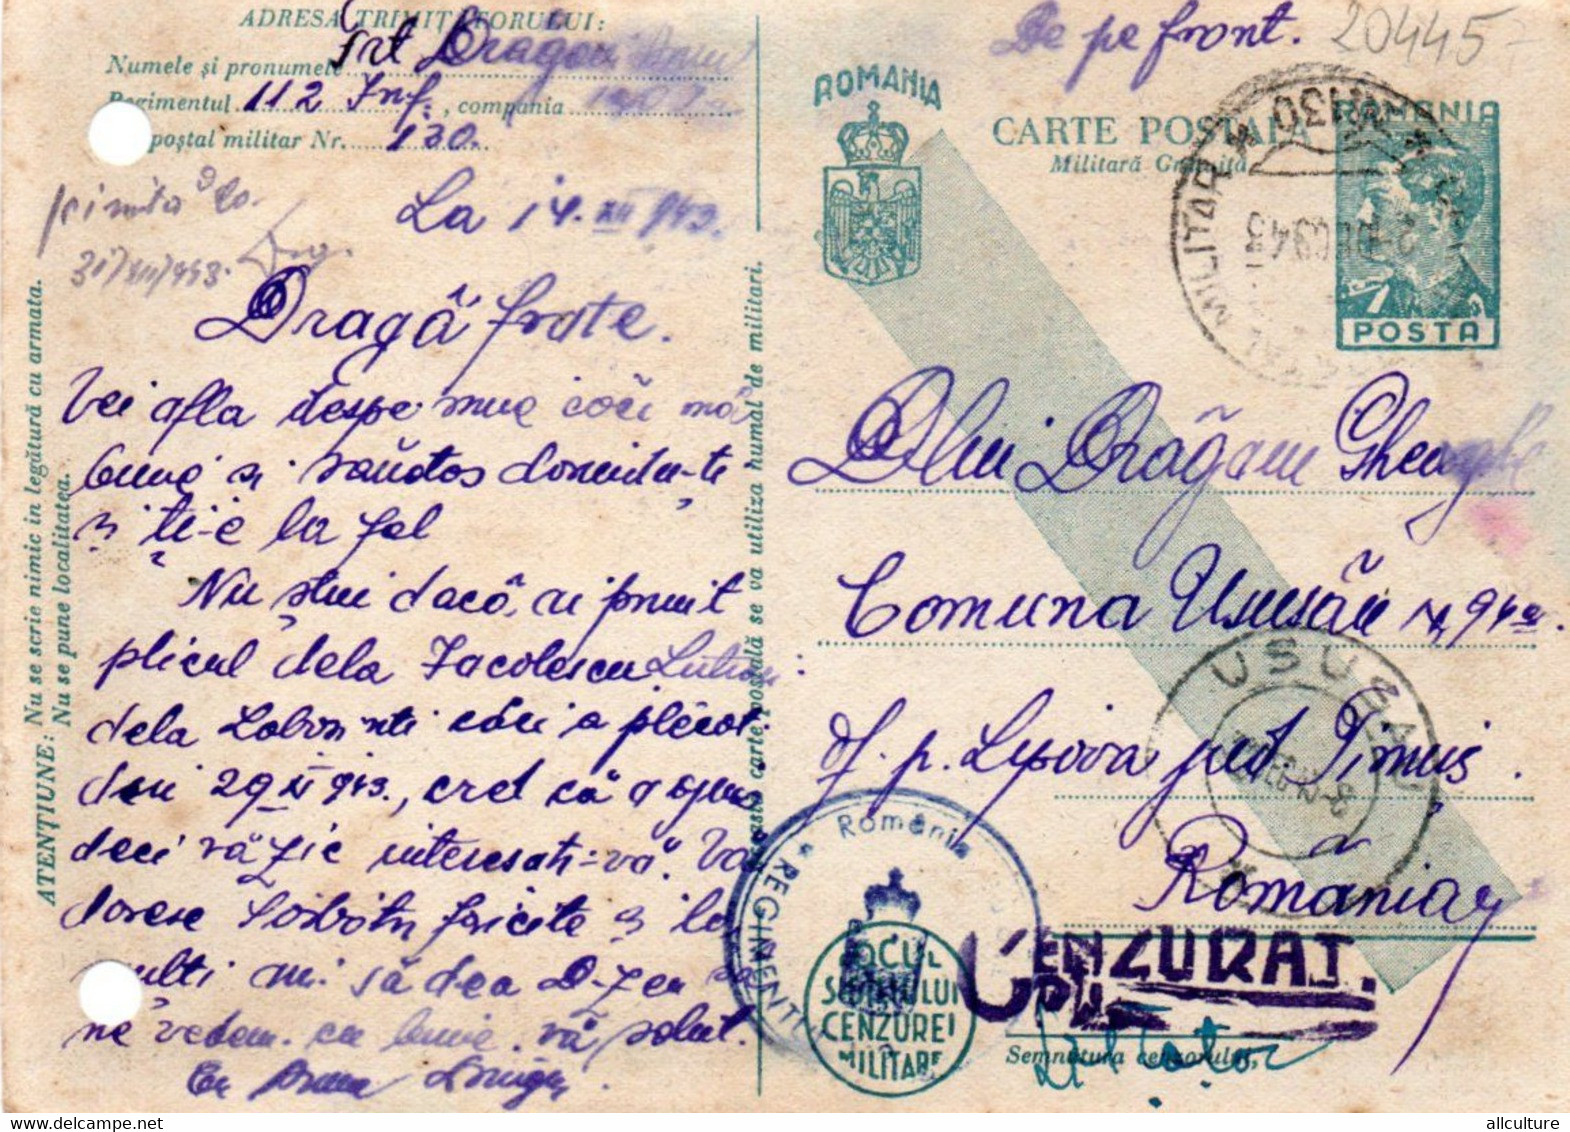 ADRESA TRIMIȚĂTORULUI:
Numele și pronumele Srt Dragan
Regimentul 112 Inf., compania
postal militar Nr. 130.
primită
31/XII/943.
La 14. XII 943.
Dragă frate.
Vei afla despre mine căci mă
bine si sănătos dorindu-te
și ți-e la fel
Nu știu dacă, ai primit
plicul dela Iacolescu
dela căci a plecat
din 29 XI 943., cred că a ajuns
deci vă fie interesați-vă. Vă
doresc fericite și la
mulți ani să dea D-zeu să
ne vedem cu bine. vă salut.
ATENȚIUNE: Nu se scrie nimic în legătură cu armata.
Nu se pune localitatea.
Această carte poștală se va utiliza numai de militari.
De pe front. 20445
ROMANIA
CARTE POSTALA
Militară Gratuită
ROMANIA
1
POSTA
MILITAR
130
943
Dlui Drăgan Gheorghe
Comuna Ususău № 94
of. p. Lipova jud. Timiș.
Romania
USUSAU
România
REGIMENTUL
LOCUL
SEMNULUI
CENZUREI
MILITARE
CENZURAT.
Semnătura cenzorului,
allculture